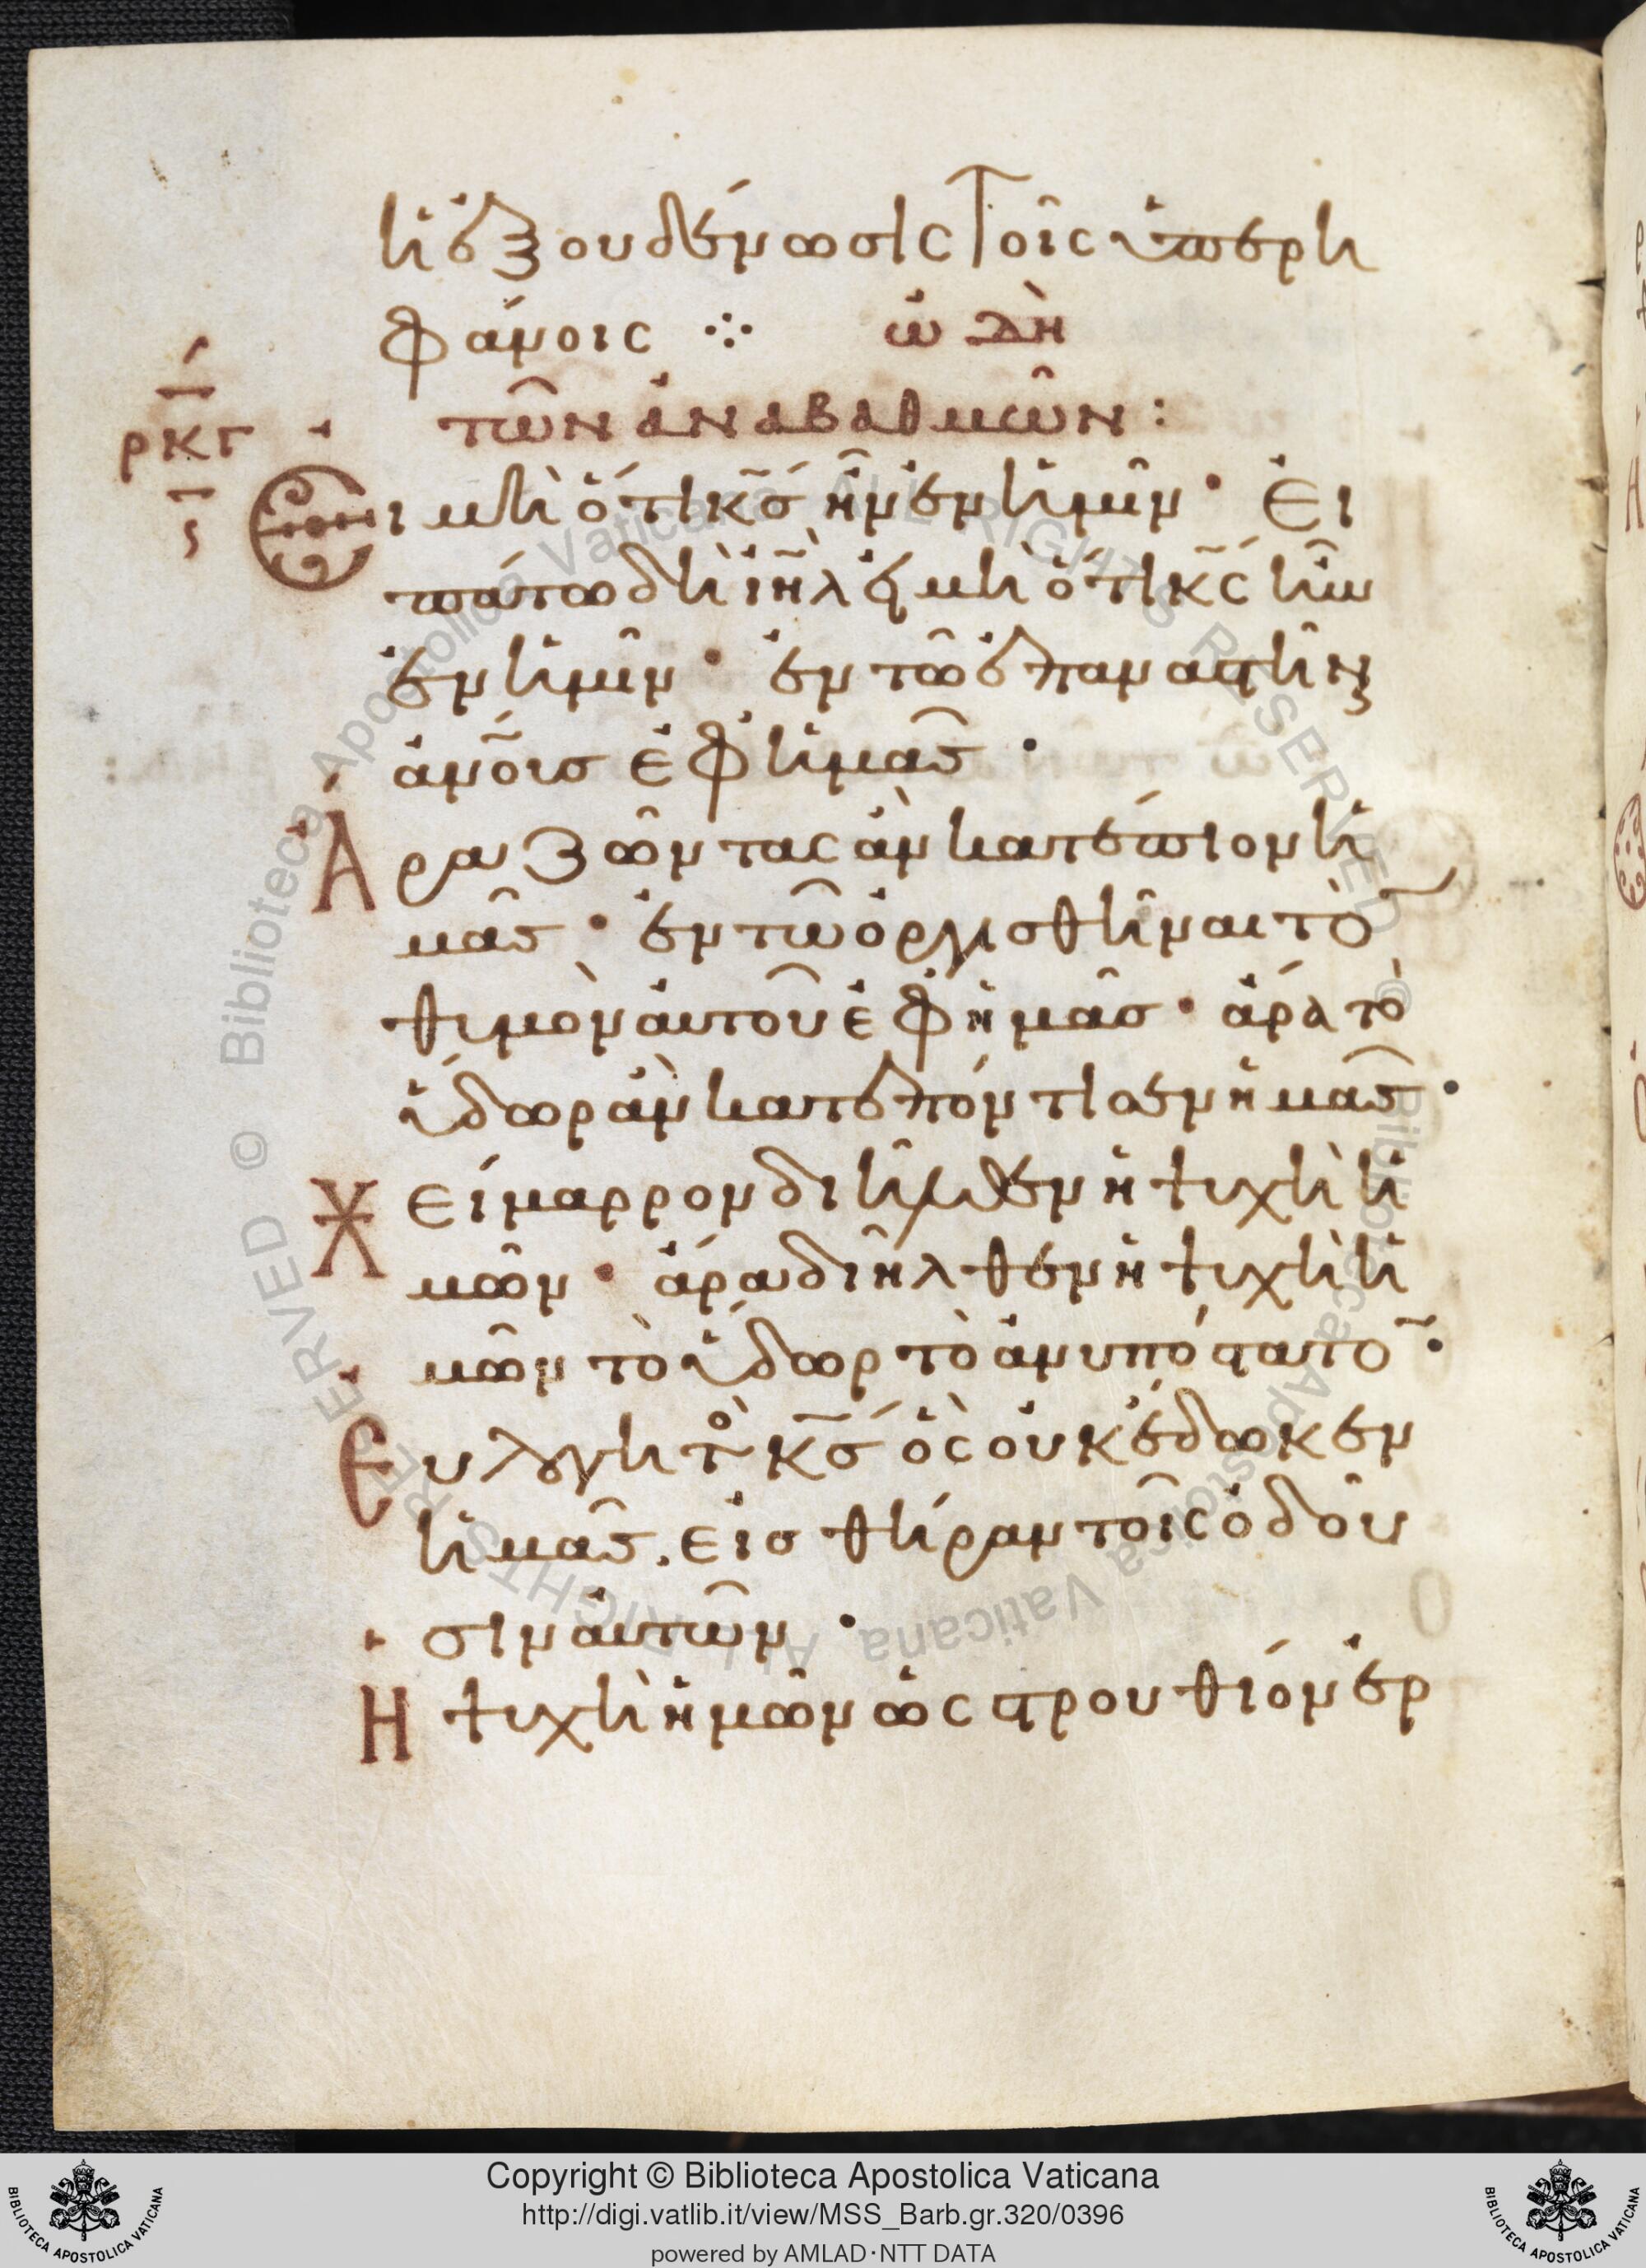 ἡ ἐξουδένωσις τοῖς ὑπερη
φάνοις ⁘ ὠδὴ
τῶν ἀναβαθμῶν :
ρκγ
Εἰ μὴ ὅτι κς ἦν ἐν ἡμῖν · Εἰ
πάτω δὴ ιηλ εἰ μὴ ὅτι κς ἦν
ἐν ἡμῖν · ἐν τῶ ἐπαναστῆναι
ἀνοισ ἐφ ἡμᾶς ·
Ἄρα ζῶντας ἂν κατέπιον ἡ
μᾶς · ἐν τῶ ὀργισθῆναι τὸν
θυμὸν αὐτοῦ ἐφ ἡμᾶσ · ἄρα τὸ
ὕδωρ ἂν κατεπόντισεν ἡμᾶς ·
Χείμαρρον διῆλθεν ἡ ψυχὴ ἡ
μῶν · ἄρα διῆλθεν ἡ ψυχὴ ἡ
μῶν τὸ ὕδωρ τὸ ἀνυπόστατον ·
Ευλογητὸς κσ ὃς οὐκ ἔδωκεν
ἡμᾶς . εἰσ θήραν τοῖς ὀδοῦ
σιν αὐτῶν ·
Η ψυχὴ ἡμῶν ὡς στρουθίον ἐρ
Copyright © Biblioteca Apostolica Vaticana
http://digi.vatlib.it/view/MSS_Barb.gr.320/0396
powered by AMLAD·NTT DATA
BIBLIOTECA APOSTOLICA VATICANA
BIBLIOTECA APOSTOLICA VATICANA